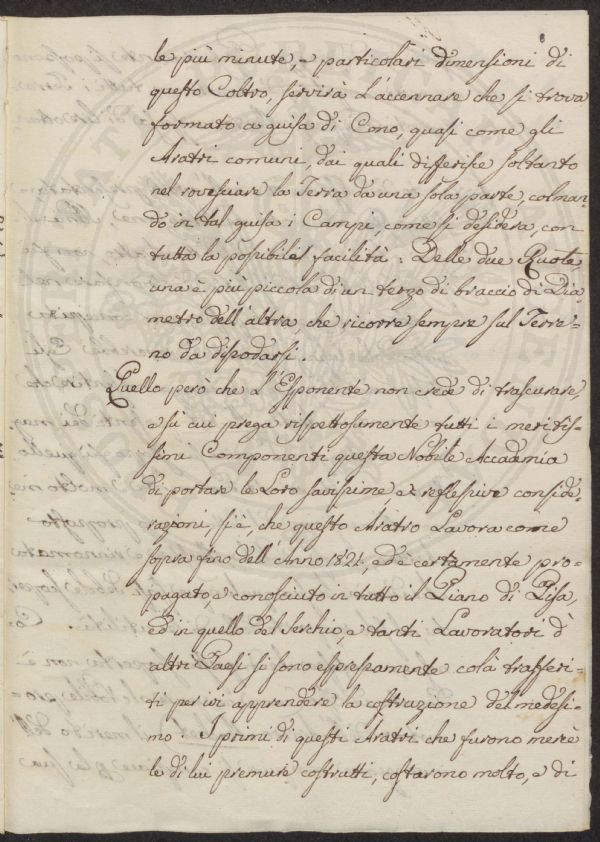 6
le più minute, e particolari dimensioni di
questo Coltro, servirà l'accennare che si trova
formato a guisa di Cono, quasi come gli
Aratri comuni, dai quali differisce soltanto
nel rovesciare la Terra da una sola parte, colman-
do in tal guisa i Campi, come si desidera, con
tutta la possibile facilità: Delle due Ruote,
una è più piccola di un terzo di braccio di Dia
metro dell'altra, che ricorre sempre sul Terre-
no da dissodarsi.
Quello però che l'Esponente non crede di trascurare,
e sù cui prega rispettosamente tutti i meritis-
simi Componenti questa Nobile Accademia
di portare le Loro savissime, e reflessive conside-
razioni, si è, che questo Aratro Lavora come
sopra fino dell'Anno 1821, ed è certamente pro-
pagato, e conosciuto in tutto il Piano di Pisa,
ed in quello del Serchio, e tanti Lavoratori d
altri Paesi si sono espressamente colà trasferi-
ti per ivi apprendere la costruzione del medesi-
mo. I primi di questi Aratri che furono mercè
le di lui premure costrutti, costarono molto, e di